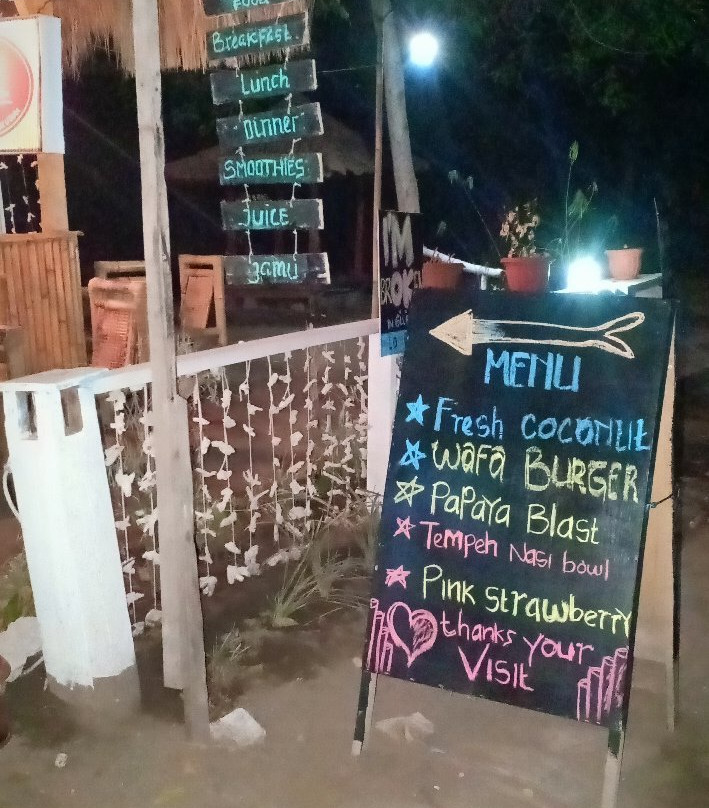 FOOD
Breakfast
Lunch
Dinner
SMOOTHIES
JUICE
Jamu
I'M
BROKEN
MENU
Fresh COCONUt
Wafa BURGER
PaPaya Blast
Tempeh Nasi bowl
Pink strawberry
thanks your
Visit